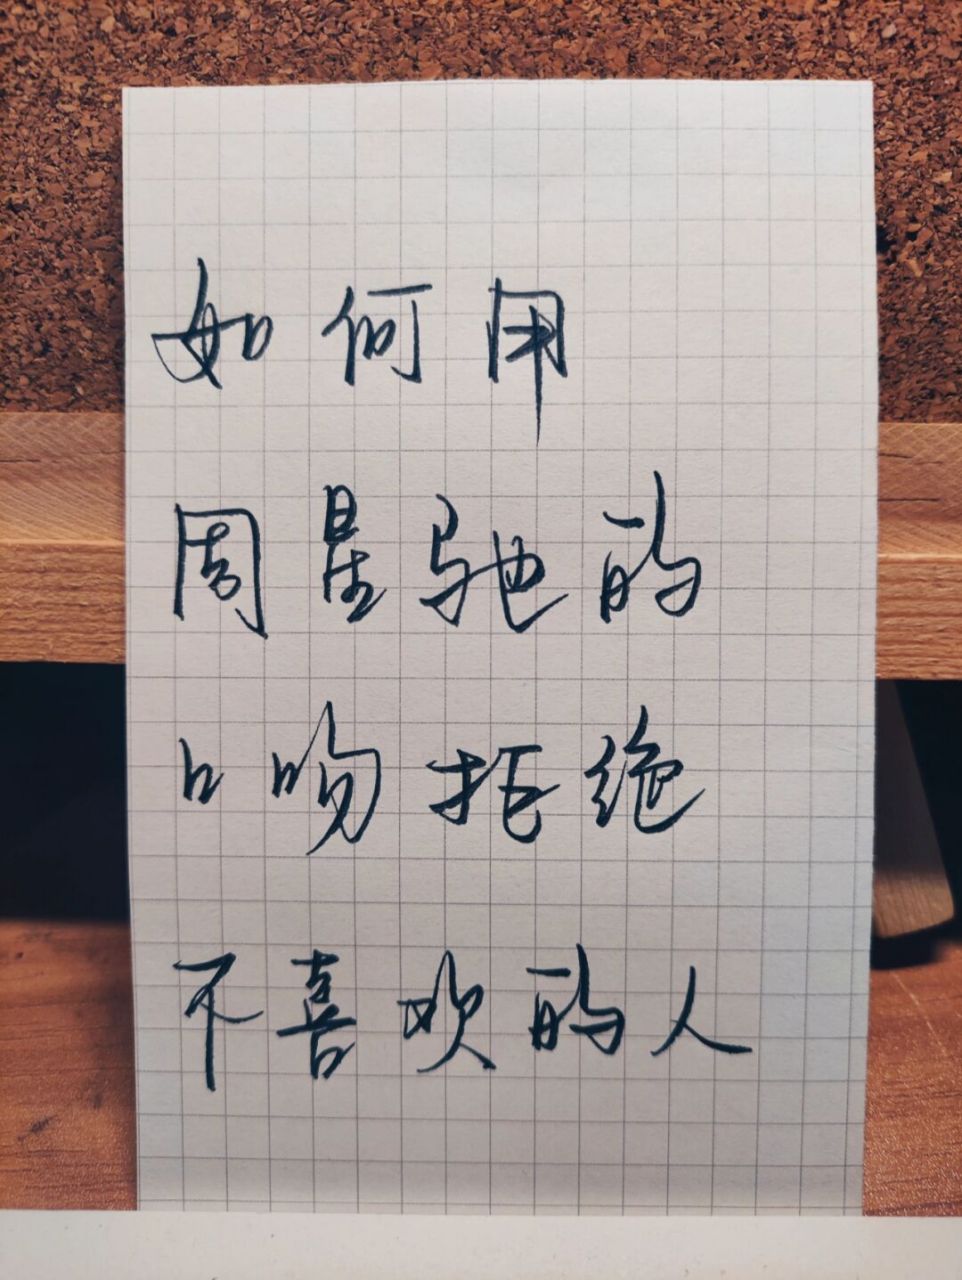 如何用
周星驰的
口吻拒绝
不喜欢的人